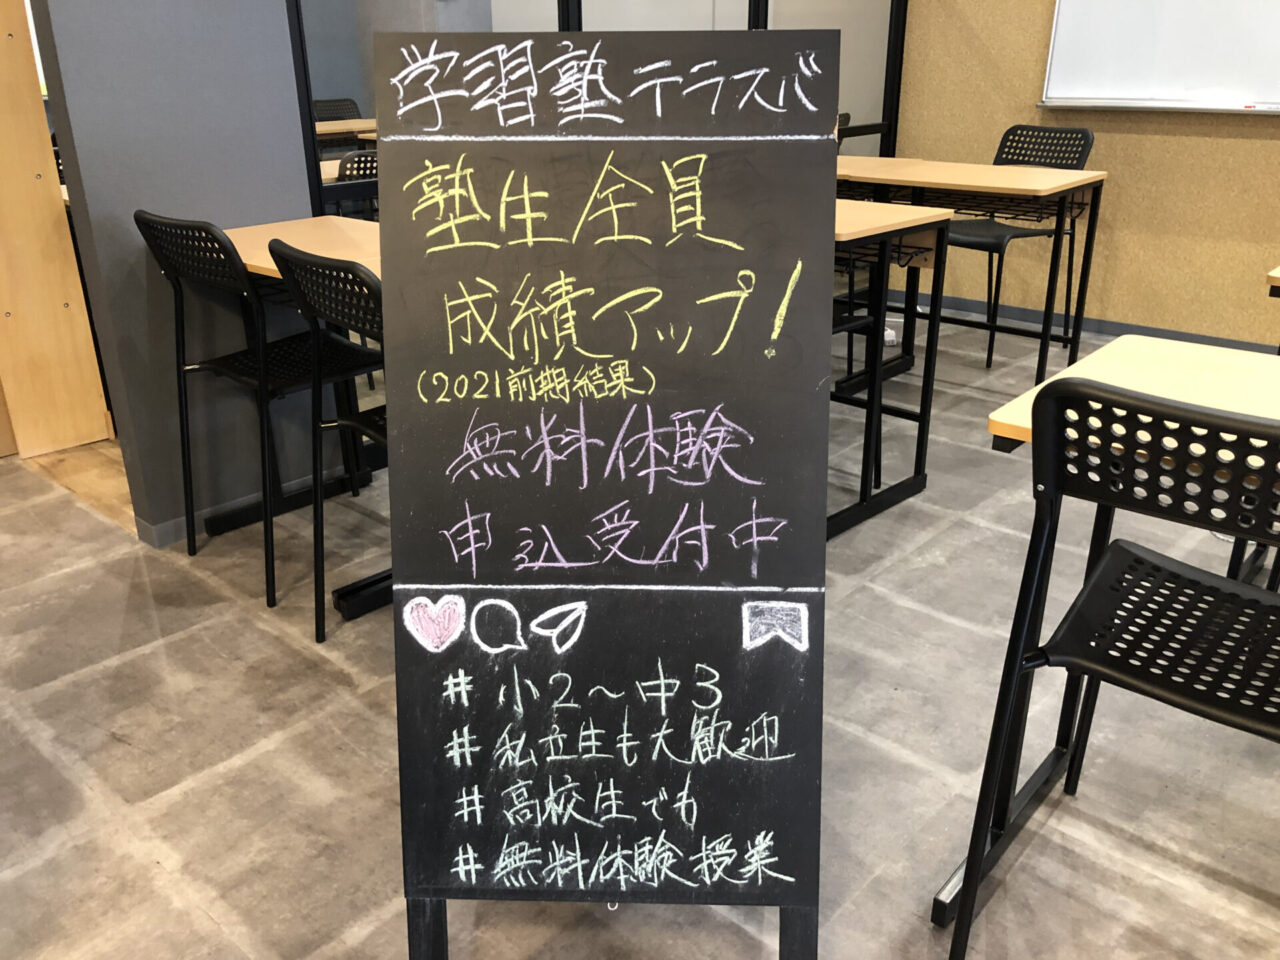 学習塾テラスバ
塾生全員
成績アップ!
(2021前期結果)
無料体験
申込受付中
#小2~中3
#私立生も大歓迎
#高校生でも
#無料体験授業